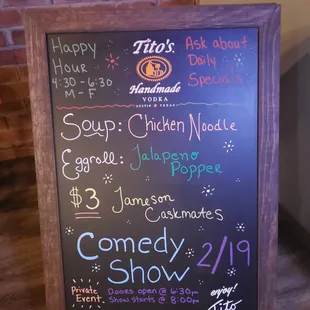 Happy
Hour
4:30 - 6:30
M - F
Tito's
Handmade
VODKA
AUSTIN TEXAS
Ask about
Daily
Specials
Soup: Chicken Noodle
Eggroll: Jalapeno
Popper
$3 Jameson
Caskmates
Comedy 2/19
Show
Private
Event
Doors open @ 6:30pm
Show starts @ 8:00pm
enjoy!
Tito